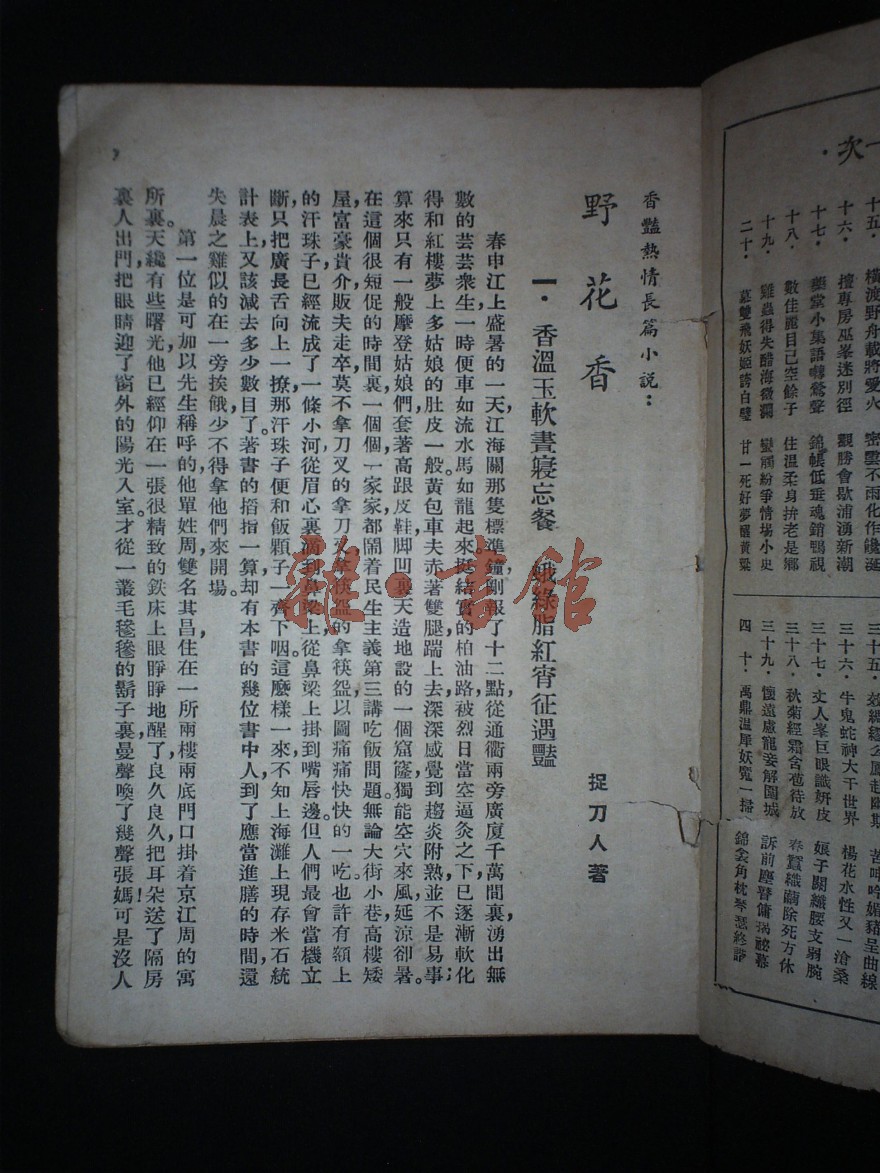 一次
十五·　橫波野舟載將愛火　密雲不雨化作饞涎
十六·　擅專房巫峯迷別徑　觀勝會歇浦湧新潮
十七·　小集語囀鶯聲　錦帳低垂魂銷鴨視
十八·　數佳麗目己空餘子　住溫柔身拚老是鄉
十九·　雞蟲得失醋海微瀾　蠻觸紛爭情場小史
二十·　墓雙飛妖姬誇白璧　甘一死好夢醒黃粱
三十五·
三十六·　牛鬼蛇神大千世界　楊花水性又一滄桑
三十七·　文人峯巨眼識妍皮　娘子關纖腰支弱腕
三十八·　秋菊經霜含苞待放　春蠶織繭除死方休
三十九·　懷遠慮寵妾解圍城　訴前塵
四　十·　禹鼎溫犀妖氛一掃　錦衾角枕琴瑟終諧
香豔熱情長篇小說：
野花香
捉刀人著
一·香溫玉軟晝寢忘餐　蛾綠脂紅宵征遇豔
春申江上盛暑的一天，江海關那隻標準鐘剛報了十二點，從通衢兩旁廣廈千萬間裏，湧出無
數的芸芸衆生，一時便車如流水馬如龍起來。挺結實的柏油路，被烈日當空逼灸之下，已逐漸軟化
得和紅樓夢上多姑娘的肚皮一般。黃包車夫赤著雙腿踹上去，深深感覺到趨炎附熟，並不是易事；
算來只有一般摩登姑娘們，套著高跟皮鞋，脚凹裏天造地設的一個窟窿，獨能空穴來風，延涼卻暑。
在這個很短促的時間裏，一個個，一家家，都鬧着民生主義第三講吃飯問題。無論大街小巷，高樓矮
屋，富豪貴介，販夫走卒，莫不拿刀叉的拿刀叉，拿筷盌的拿筷盌，以圖痛痛快快的一吃。也許有額上
的汗珠子，已經流成了一條小河，從眉心裏淌到鼻梁上，從鼻梁上掛到嘴唇邊。但人們最會當機立
斷，只把廣長舌向上一撩，那汗珠子便和飯顆子一齊下咽，這麼樣一來，不知上海灘上現存米石統
計表上，又該減去多少數目了。著書的搯指一算，却有本書的幾位書中人，到了應當進膳的時間，還
失晨之雞似的在一旁挨餓，少不得拿他們來開場。
第一位是可加以先生稱呼的，他單姓周，雙名其昌，住在一所兩樓兩底，門口掛着京江周的寓
所裏。天纔有些曙光，他已經仰在一張很精致的鉄床上，眼睜睜地醒了，良久良久，把耳朵送了隔房
裏人出門，把眼睛迎了窗外的陽光入室，才從一叢毛毿毿的鬍子裏，曼聲喚了幾聲張媽！可是沒人
雜·書館